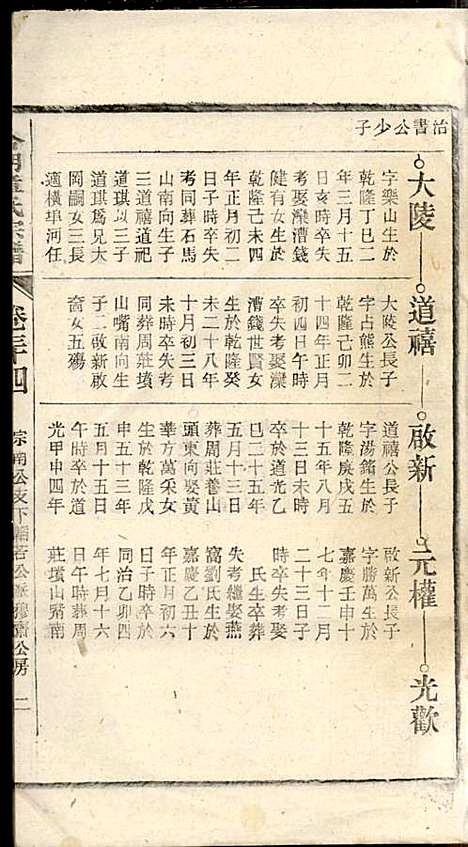 治書公少子
大陵
道禧
啟新
元權
光歡
字樂山生於
乾隆丁巳二
年三月十五
日亥時卒失
考娶濼漕錢
健有女生於
乾隆己未四
年正月初二
日子時卒失
考同葬石馬
山南向生子
三道禧道祀
道琪以三子
道琪爲兄大
岡嗣女三長
適橫埠河任
大陵公長子
字占熊生於
乾隆己卯二
十四年正月
初四日午時
卒失考娶濼
漕錢世賢女
生於乾隆癸
未二十八年
十月初三日
未時卒失考
同葬周莊墳
山嘴南向生
子二啟新啟
裔女五殤
道禧公長子
字湯銘生於
乾隆庚戌五
十五年八月
十三日未時
卒於道光乙
巳二十五年
五月十三日
葬周莊營山
頭東向娶黃
華方萬采女
生於乾隆戊
申五十三年
五月十五日
午時卒於道
光甲申四年
啟新公長子
字勝萬生於
嘉慶壬申十
七年十二月
二十三日子
時卒失考娶
氏生卒葬
失考繼娶燕
窩劉氏生於
嘉慶乙丑十
年正月初六
日子時卒於
同治乙卯四
年七月十六
日午時葬周
莊墳山嘴南
董氏宗譜
卷三十四
宗南公支下
公房 二